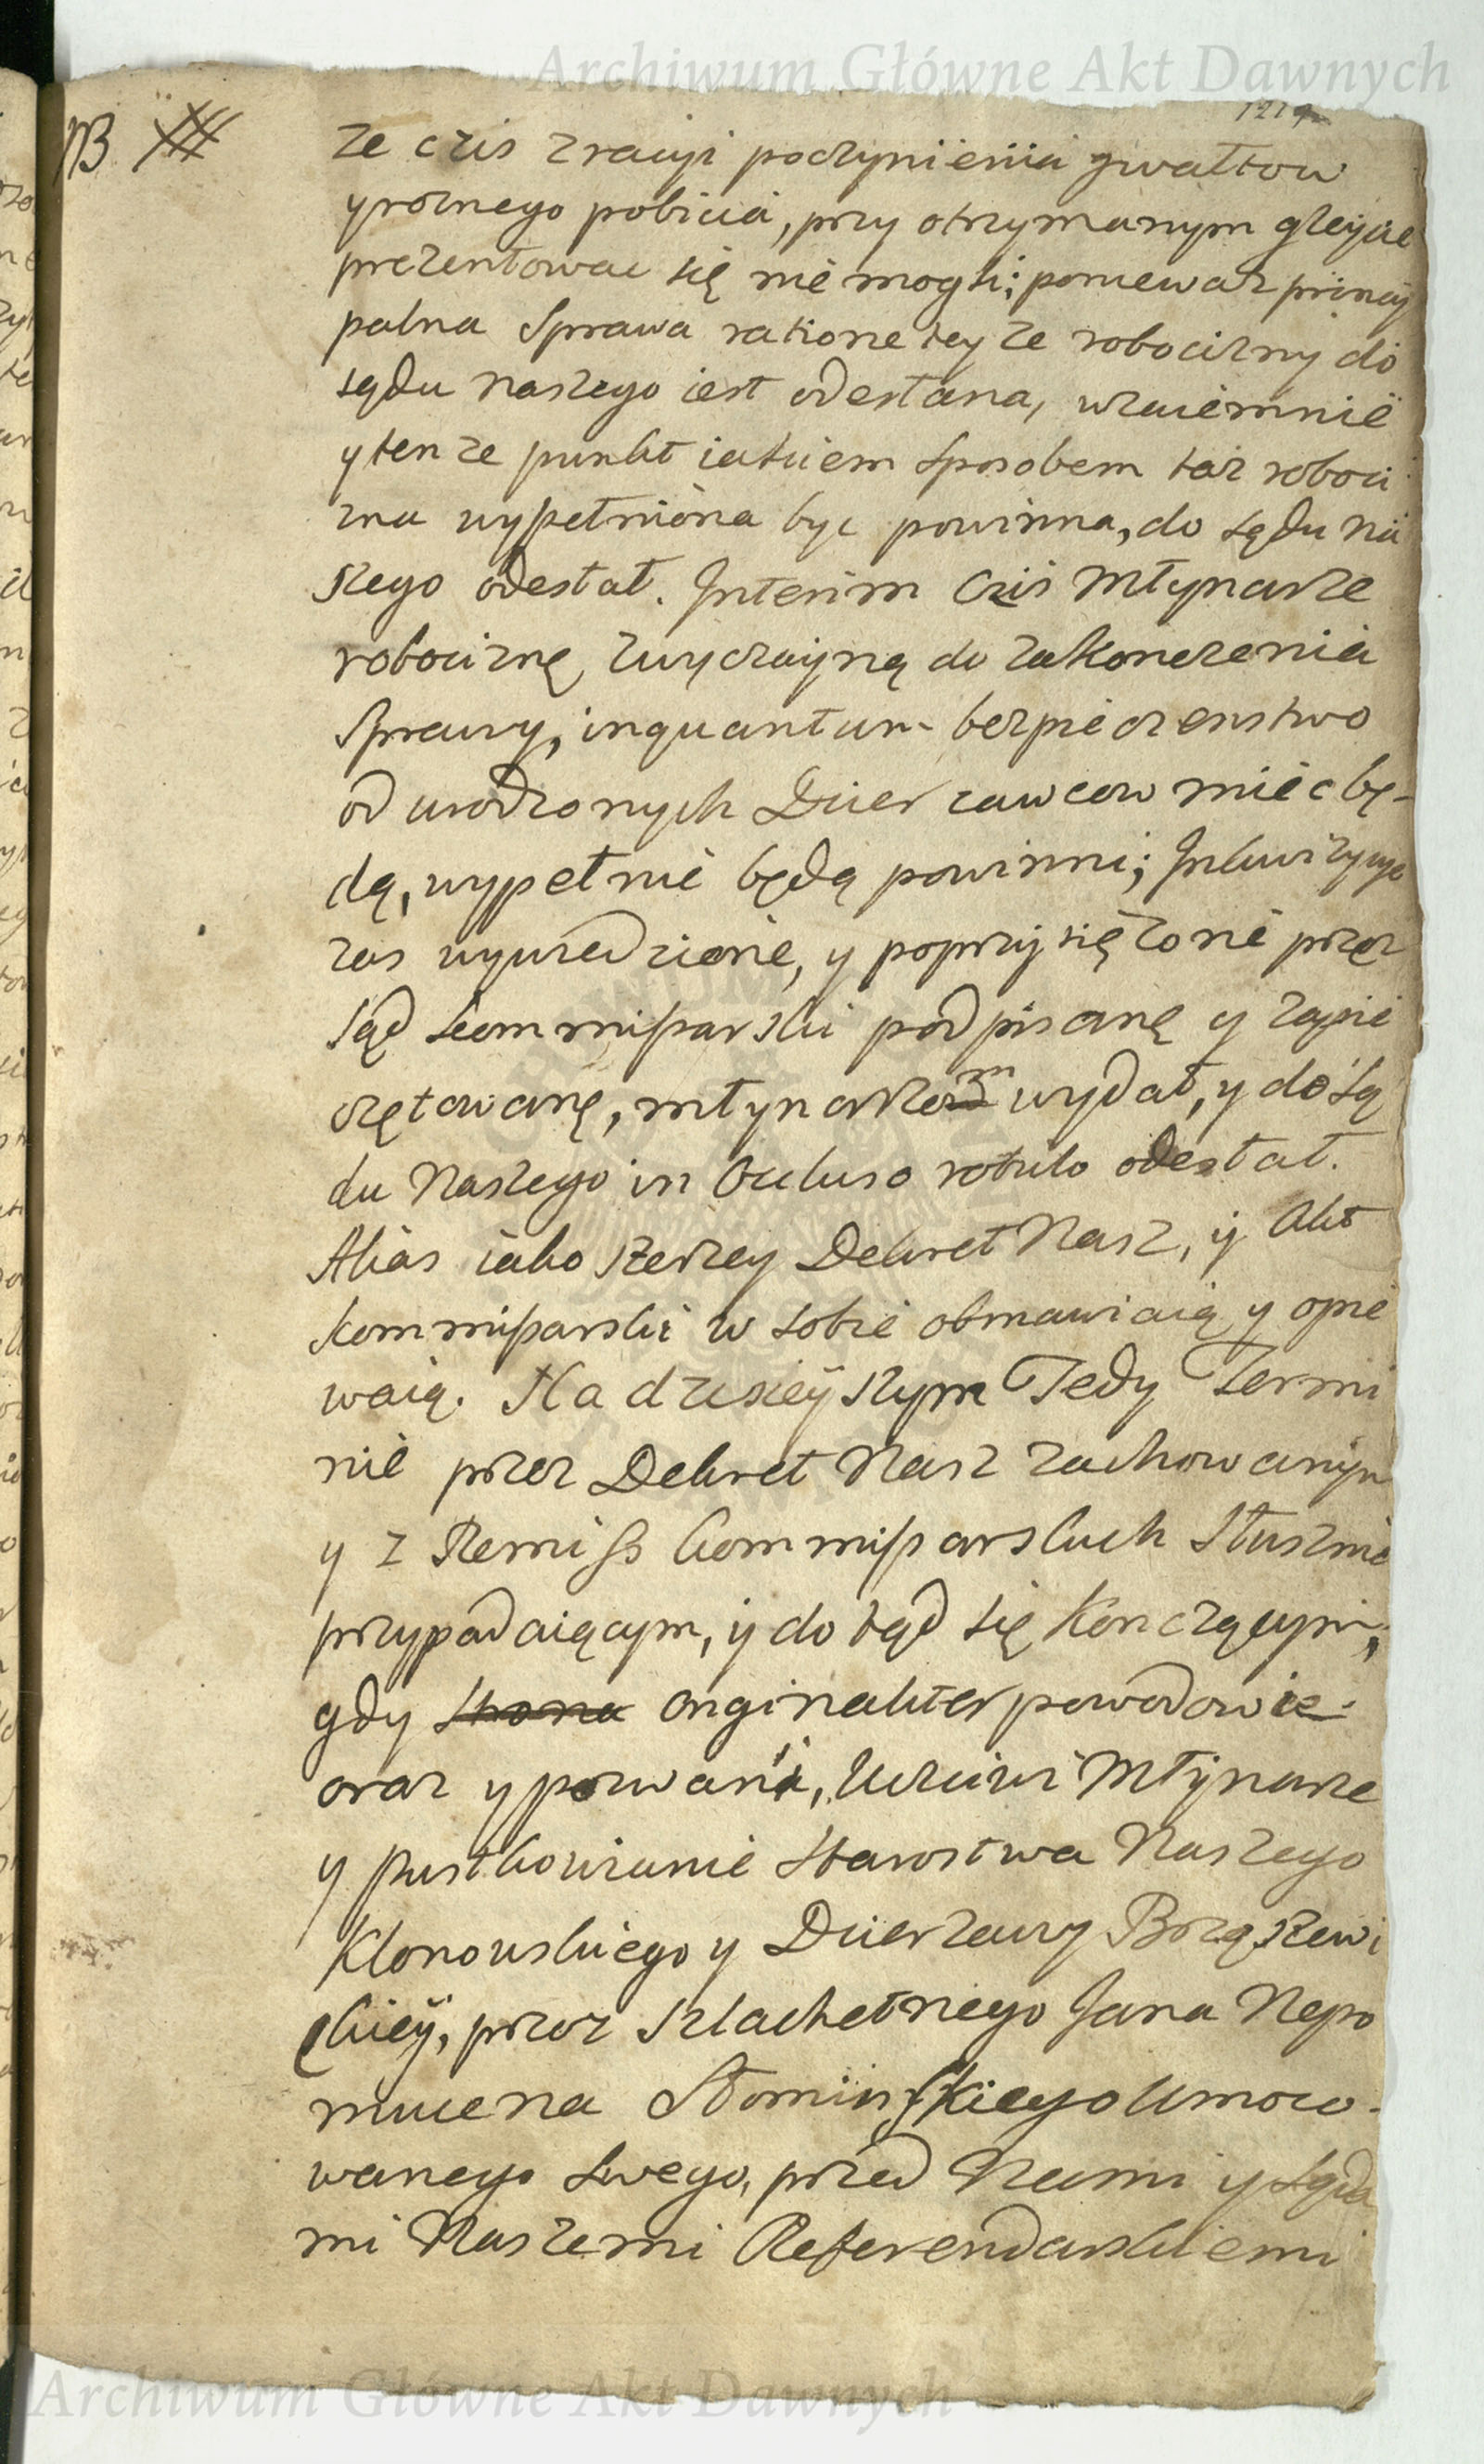 Archiwum Główne Akt Dawnych
NB
ze ciż z racyi poczynienia gwałtow
y roznego pobicia, przy otrzymanym gleycie
prezentowac się nie mogli; poniewaz princy
palna Sprawa ratione teyze robocizny do
sądu naszego iest odesłana, wzaiemnie
y tenze punkt iakiem sposobem taz roboci
zna wypełniona byc powinna, do sądu Na
szego odesłał. Interim Ciż Młynarze
robociznę zwyczayną do zakonczenia
Sprawy, inquantum bezpieczenstwo
od urodzonych Dzierzawcow miec bę-
dą, wypełnic będą powinni; Inkwizycye
zas wywiedzione, y poprzysięzone przez
sąd kommissarski podpisanę y zapie
czętowanę, młynarzom wydał, y do Są
du Naszego in Occluso rotulo odesłał.
Alias iako szerzey Dekret Nasz, y Akt
kommissarski w sobie obmawiaią y opie
waią. Na dzisieyszym Tedy Termi
nie przez Dekret Nasz zachowanym
y z Remiss kommissarskich Słusznie
przypadaiącym, y do tąd się Konczącym,
gdy Strona orginaliter powodowie
oraz y pozwani, Uczciwi Młynarze
y pustkowianie Starostwa Naszego
Klonowskiego y Dzierzawy Brzą‌szewi
ckiey, przez Szlachetnego Jana Nepo
mucena Słominskiego Umoco-
wanego swego, przed Nami y sąda
mi Naszemi Referendarskiemi
Archiwum Główne Akt Dawnych